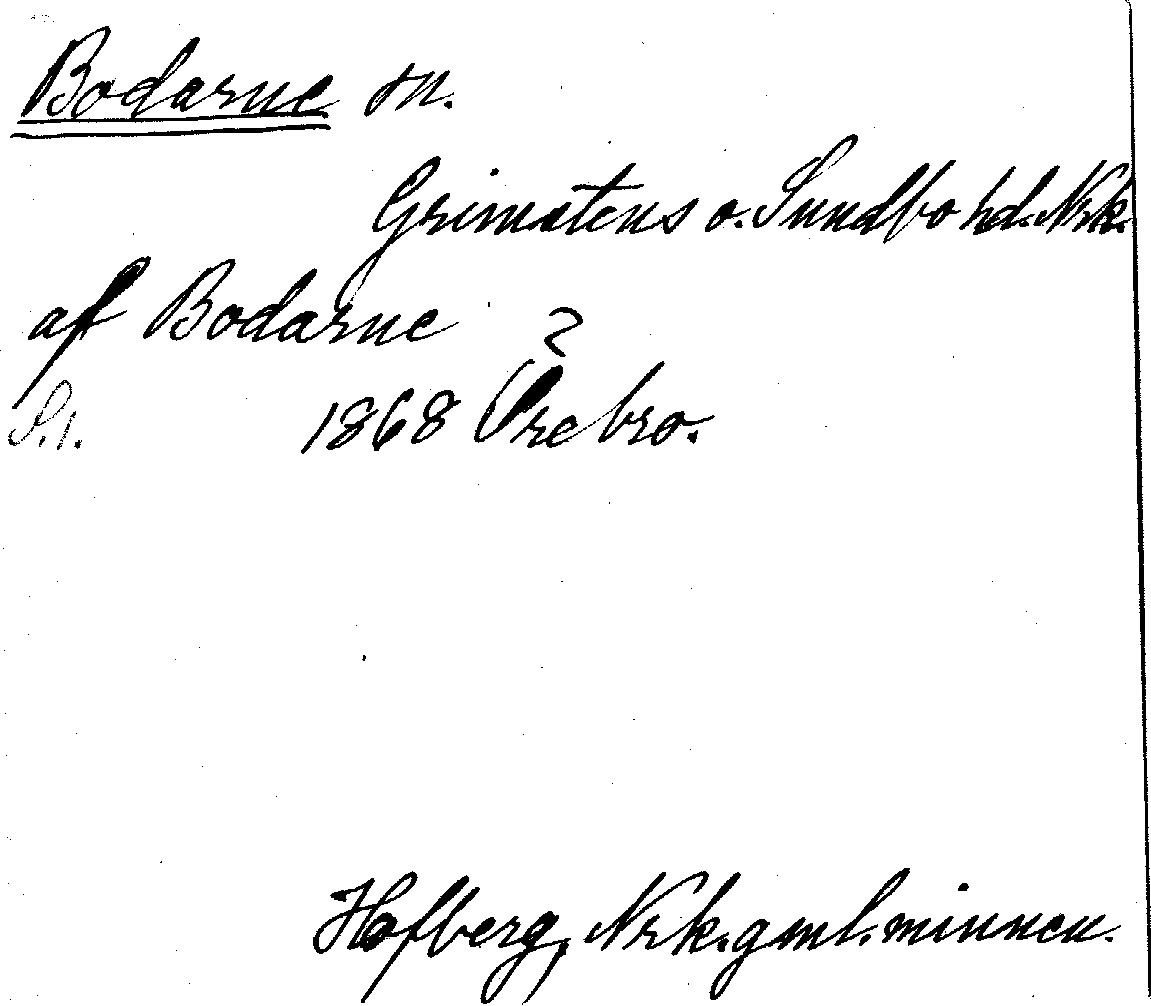 Bodarne m.
Grimstens o. Sundbo hd. Nrk.
af Bodarne ?
S. 1. 1868 Örebro.
Hofberg, Nrk. gml. minnen.